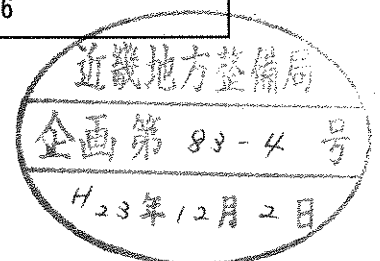 6
近畿地方整備局
企画第 83-4 号
H23年12月2日